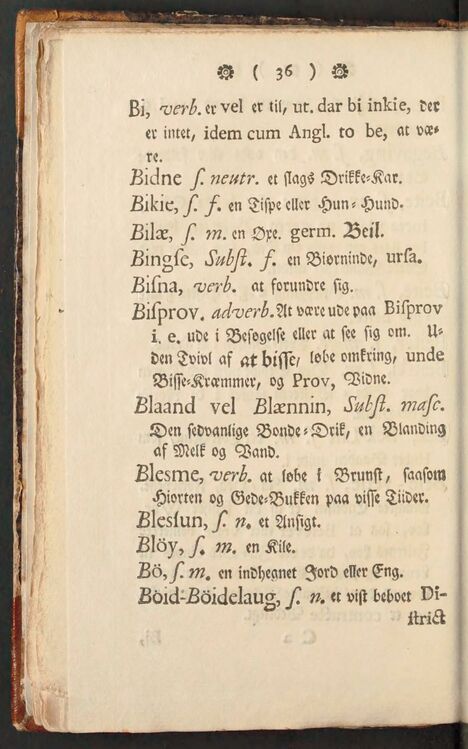 ( 36 )
Bi, verb. er vel er til, ut. dar bi inkie, der
er intet, idem cum Angl. to be, at væ=
re.
Bidne ſ. neutr. et ſlags Drikke=Kar.
Bikie, ſ. f. en Tiſpe eller Hun=Hund.
Bilæ, ſ. m. en Øxe. germ. Beil.
Bingſe, Subſt. f. en Biørninde, urſa.
Biſna, verb. at forundre ſig.
Biſprov. adverb. At være ude paa Biſprov
i. e. ude i Beſøgelſe eller at ſee ſig om. U=
den Tvivl af at biſſe, løbe omkring, unde
Biſſe=Kræmmer, og Prov, Vidne.
Blaand vel Blænnin, Subſt. maſc.
Den ſedvanlige Bonde=Drik, en Blanding
af Melk og Vand.
Blesme, verb. at løbe i Brunſt, ſaaſom
Hiorten og Gede=Bukken paa viſſe Tiider.
Blesſun, ſ. n. et Anſigt.
Blöy, ſ. m. en Kile.
Bö, ſ. m. en indhegnet Jord eller Eng.
Böid-Böidelaug, ſ. n. et viſt beboet Di-
ſtrict